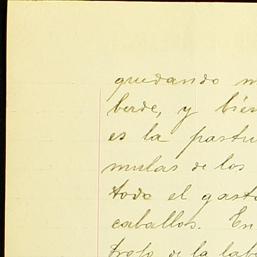 quedando m
berde, y bien
es la pastu
mulas de los
todo el gast
caballos. En
trofo de la lab